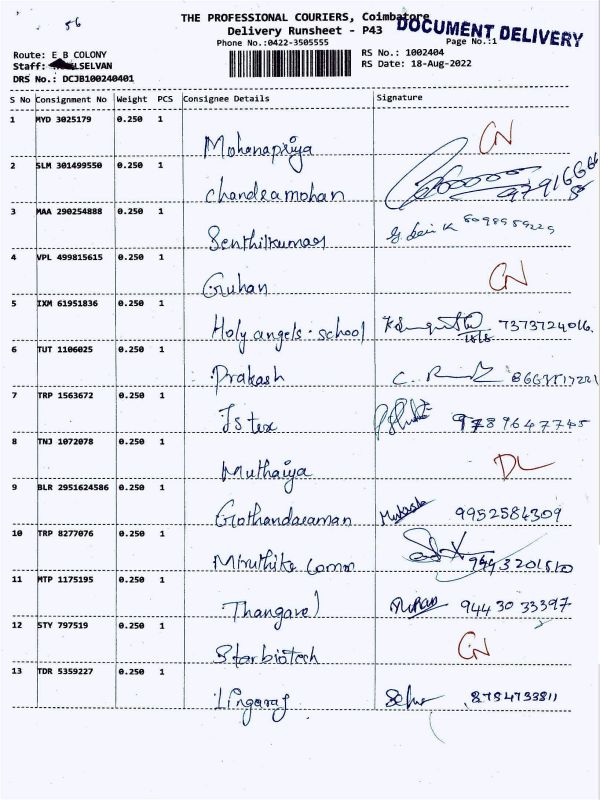 56
THE PROFESSIONAL COURIERS, Coimbatore
DOCUMENT DELIVERY
Delivery Runsheet - P43
Phone No.:0422-3505555 Page No.:1
Route: E B COLONY RS No.: 1002404
Staff: LSELVAN RS Date: 18-Aug-2022
DRS No.: DCJB100240401
S No Consignment No Weight PCS Consignee Details Signature
1 MYD 3025179 0.250 1 Mohanapriya CN
2 SLM 301499550 0.250 1 Chandramohan
3 MAA 290254888 0.250 1 Senthilkumar
4 VPL 499815615 0.250 1 Guhan CN
5 IXM 61951836 0.250 1 Holy angels school 7373724016
6 TUT 1106025 0.250 1 Prakash
7 TRP 1563672 0.250 1 Istex 9789647745
8 TNJ 1072078 0.250 1 Muthaiya DL
9 BLR 2951624586 0.250 1 Gothandaraman 9952584309
10 TRP 8277076 0.250 1 Miruthike Comm
11 MTP 1175195 0.250 1 Thangavel 9443033397
12 STY 797519 0.250 1 Starbiotech CN
13 TDR 5359227 0.250 1 Lingaraj 8754733811